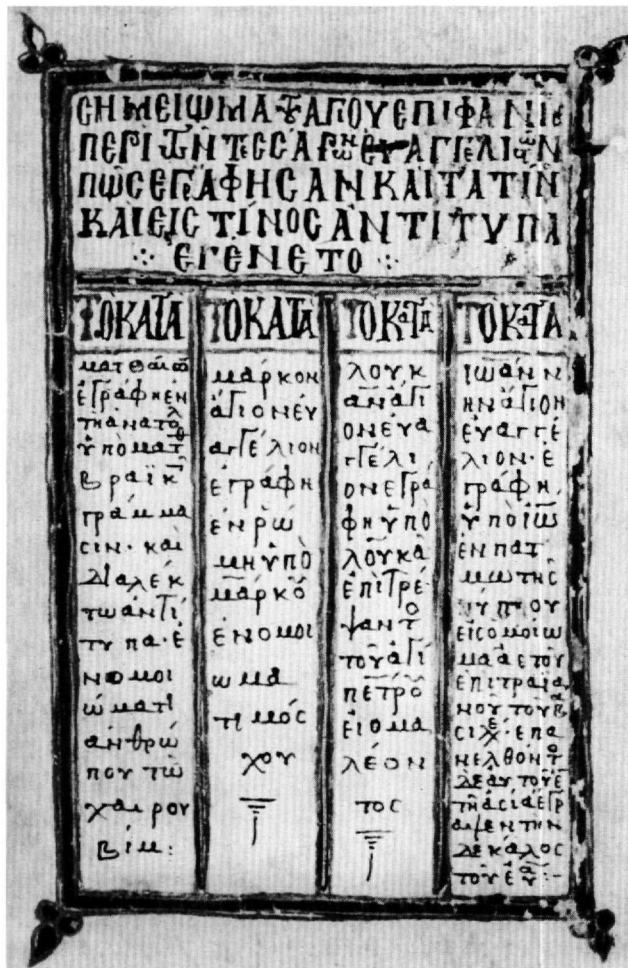 СΗΜΕΙΩΜΑ ΤΟΥ ΑΓΙΟΥ ΕΠΙΦΑΝΙΟΥ
ΠΕΡΙ ΤΩΝ ΤΕССΑΡΩΝ ΕΥΑΓΓΕΛΙΩΝ
ΠΩС ΕΓΡΑΦΗСΑΝ ΚΑΙ ΤΑ ΤΙΝ
ΚΑΙ ΕΙС ΤΙΝΟС ΑΝΤΙΤΥΠΑ
ΕΓΕΝΕΤΟ
ΤΟ ΚΑΤΑ
ματθαιον
ἐγράφη ἐν
τη ἀνατολ
ὑπὸ ματθ
βραϊκ
γράμμα
σιν· και
διαλέκ
τω ἀντί
τυπα· ἐ
ν ομοι
ώματι
ἀνθρώ
που τω
χαιρου
βίμ:
ΤΟ ΚΑΤΑ
μάρκον
ἅγιον ἐυ
αγγέλιον
ἐγράφη
ἐν ρώ
μη ὑπὸ
μάρκου
ἐν ομοι
ωμα
τι μόσ
χου
ΤΟ ΚΑΤΑ
λουκ
αν ἅγι
ον ἐυα
γγέλι
ον εγρα
φη ὑπὸ
λουκὰ
ἐπιτρέ
ψαντο
του ἁγί
πέτρου
ἐι ομα
λέον
τος
ΤΟ ΚΑΤΑ
ιωάνν
ην ἅγιον
ἐυαγγέ
λιον· ἐ
γράφη
ὑπὸ ιω
ἐν πατ
μω της
εισ ομοιω
μα ἀετου
ἐπι τραϊα
νου του βα
σιλε· ἐπα
νελθοντ
τη ἀσια ἐγρ